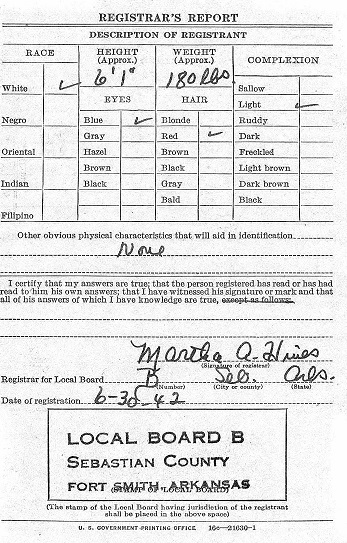 REGISTRAR'S REPORT
DESCRIPTION OF REGISTRANT
RACE
HEIGHT (Approx.)
WEIGHT (Approx.)
COMPLEXION
6' 1"
180 lbs.
White ✓
EYES
HAIR
Sallow
Light ✓
Negro
Blue ✓
Blonde
Ruddy
Gray
Red ✓
Dark
Oriental
Hazel
Brown
Freckled
Brown
Black
Light brown
Indian
Black
Gray
Dark brown
Bald
Black
Filipino
Other obvious physical characteristics that will aid in identification
None
I certify that my answers are true; that the person registered has read or has had
read to him his own answers; that I have witnessed his signature or mark and that
all of his answers of which I have knowledge are true, except as follows:
Martha A. Hines
(Signature of registrar)
Registrar for Local Board B Seb. Ark.
(Number) (City or county) (State)
Date of registration 6-30-42
LOCAL BOARD B
SEBASTIAN COUNTY
FORT SMITH, ARKANSAS
(STAMP OF LOCAL BOARD)
(The stamp of the Local Board having jurisdiction of the registrant
shall be placed in the above space)
U. S. GOVERNMENT PRINTING OFFICE 16—21630-1